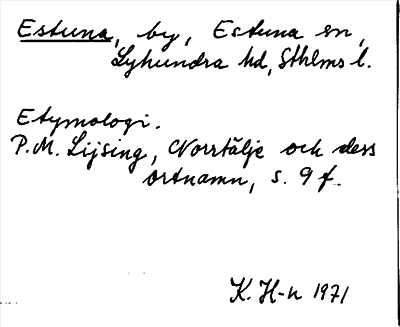 Estuna, by, Estuna sn,
Lyhundra hd, Sthlms l.
Etymologi.
P.M. Lijsing, Norrtälje och dess
ortnamn, s. 9 f.
K. H-n 1971